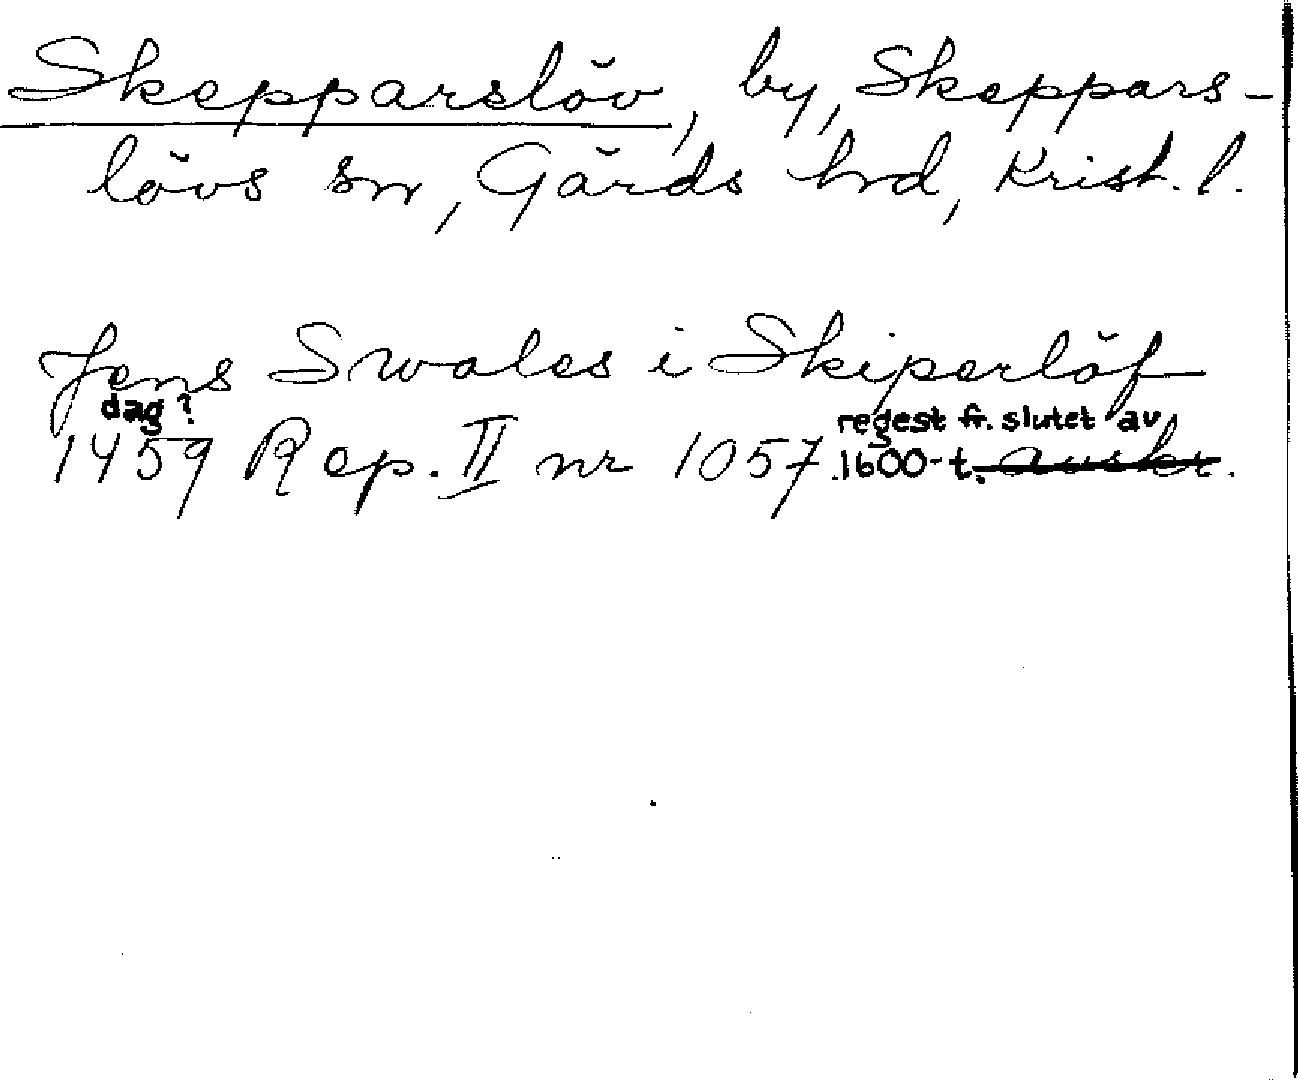 Skepparslöv, by, Skeppars-
lövs sn, Gärds hrd, Krist. l.
Jens Swales i Skiperlöf
dag? regest fr. slutet av
1459 Rep. II nr 1057. 1600-t. avskr.